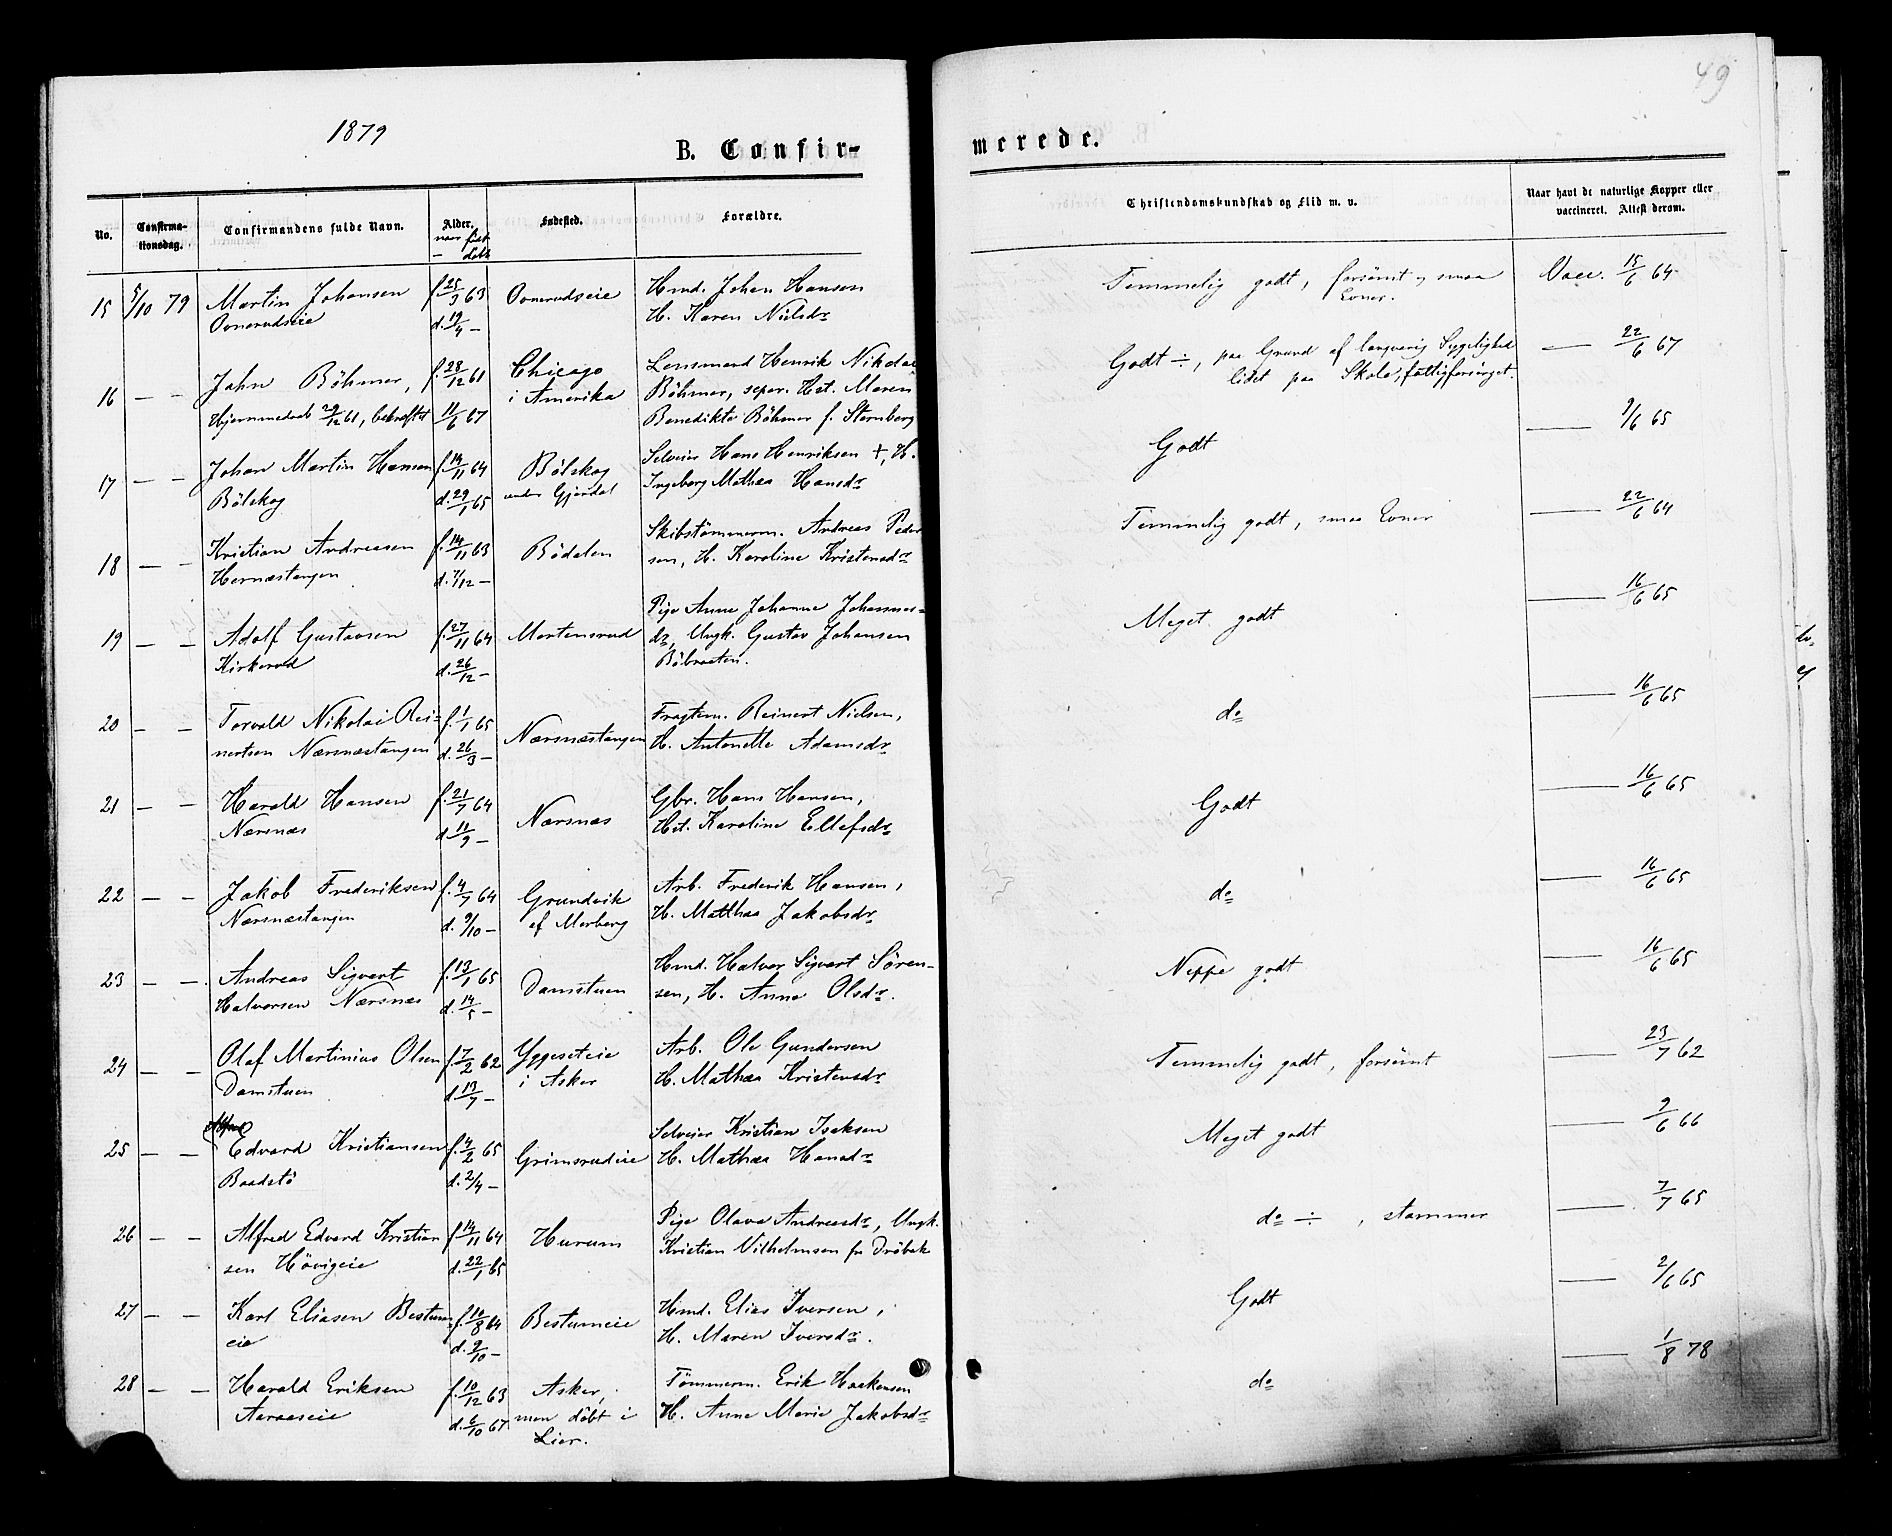 1879
49
B. Confir-
merede.
No.
Confirma-
tionsdag.
Confirmandens fulde Navn.
Alder.
Fødested.
Forældre.
Christendomskundskab og Flid m. v.
Naar havt de naturlige Kopper eller
vaccineret. Attest derom.
15 5/10 79 Martin Johansen f. 25/3 63 Ovnerudseie Hmd. Johan Hansen Temmelig godt, forsömt og smaa Vacc. 15/6 64
Ovnerudseie d. 19/4 — H. Karen Nielsdr. Evner.
16 — — John Böhmer, f. 28/12 61 Chicago Lensmand Henrik Nikolai Godt ÷, paa Grund af langvarig Sygelighed — 22/6 67
Hjemmedøb 29/12 61, bekræftet 11/6 67 i Amerika Böhmer, separ. Hst. Maren lidet paa Skole, fattigforsörget.
Benedikte Böhmer f. Sternberg
17 — — Johan Martin Hansen f. 14/11 64 Bölskog Selveier Hans Henriksen +, H. Godt — 9/6 65
Bölskog d. 29/1 65 under Gjerdal Ingeborg Mathea Hansdr.
18 — — Kristian Andreasen f. 14/11 63 Bödalen Skibstömmerm. Andreas Peder- Temmelig godt, smaa Evner — 22/6 64
Hernæstangen d. 7/12 — sen, H. Karoline Kristensdr.
19 — — Adolf Gustavsen f. 27/11 64 Mortensrud Pige Anne Johanne Johannes- Meget godt — 16/6 65
Kirkerud d. 26/12 — dr., Ungk. Gustav Johansen
Böbraaten.
20 — — Torvald Nikolai Rei- f. 1/1 65 Nærsnæstangen Fragtm. Reinert Nielsen, do — 16/6 65
nertsen Nærsnæstangen d. 26/3 — H. Antonette Adamsdr.
21 — — Harald Hansen f. 21/7 64 Nærsnæs Gbr. Hans Hansen, Godt — 16/6 65
Nærsnæs d. 11/9 — Hst. Karoline Ellefsdr.
22 — — Jakob Frederiksen f. 4/7 64 Grundvik Arb. Frederik Hansen, do — 16/6 65
Nærsnæstangen d. 9/10 — af Morberg H. Mathea Jakobsdr.
23 — — Andreas Sigvart f. 12/1 65 Damstuen Hmd. Halvor Sigvart Sören- Neppe godt — 16/6 65
Halvorsen Nærsnæs d. 14/5 — sen, H. Anne Olsdr.
24 — — Olaf Martinius Olsen f. 7/2 62 Yggeseteie Arb. Ole Gundersen Temmelig godt, forsömt — 23/7 62
Damstuen d. 13/7 — i Asker H. Mathea Kristensdr.
25 — — Edvard Kristiansen f. 4/2 65 Grimsrudeie Selveier Kristian Isaksen Meget godt — 9/6 66
Baadstö d. 2/4 — H. Mathea Hansdr.
26 — — Alfred Edvard Kristian- f. 14/11 64 Hurum Pige Olava Andreasdr., Ungk. do ÷, stammer — 7/7 65
sen Hövigeie d. 22/1 65 Kristian Vilhelmsen fr. Dröbak
27 — — Karl Eliasen Bestum- f. 10/8 64 Bestumeie Hmd. Elias Iversen, Godt — 2/6 65
eie d. 9/10 — H. Maren Iversdr.
28 — — Harald Eriksen f. 10/12 63 Asker, Tömmerm. Erik Haakensen do — 1/8 78
Aaraaseie d. 6/10 67 men döbt i H. Anne Marie Jakobsdr.
Lier.